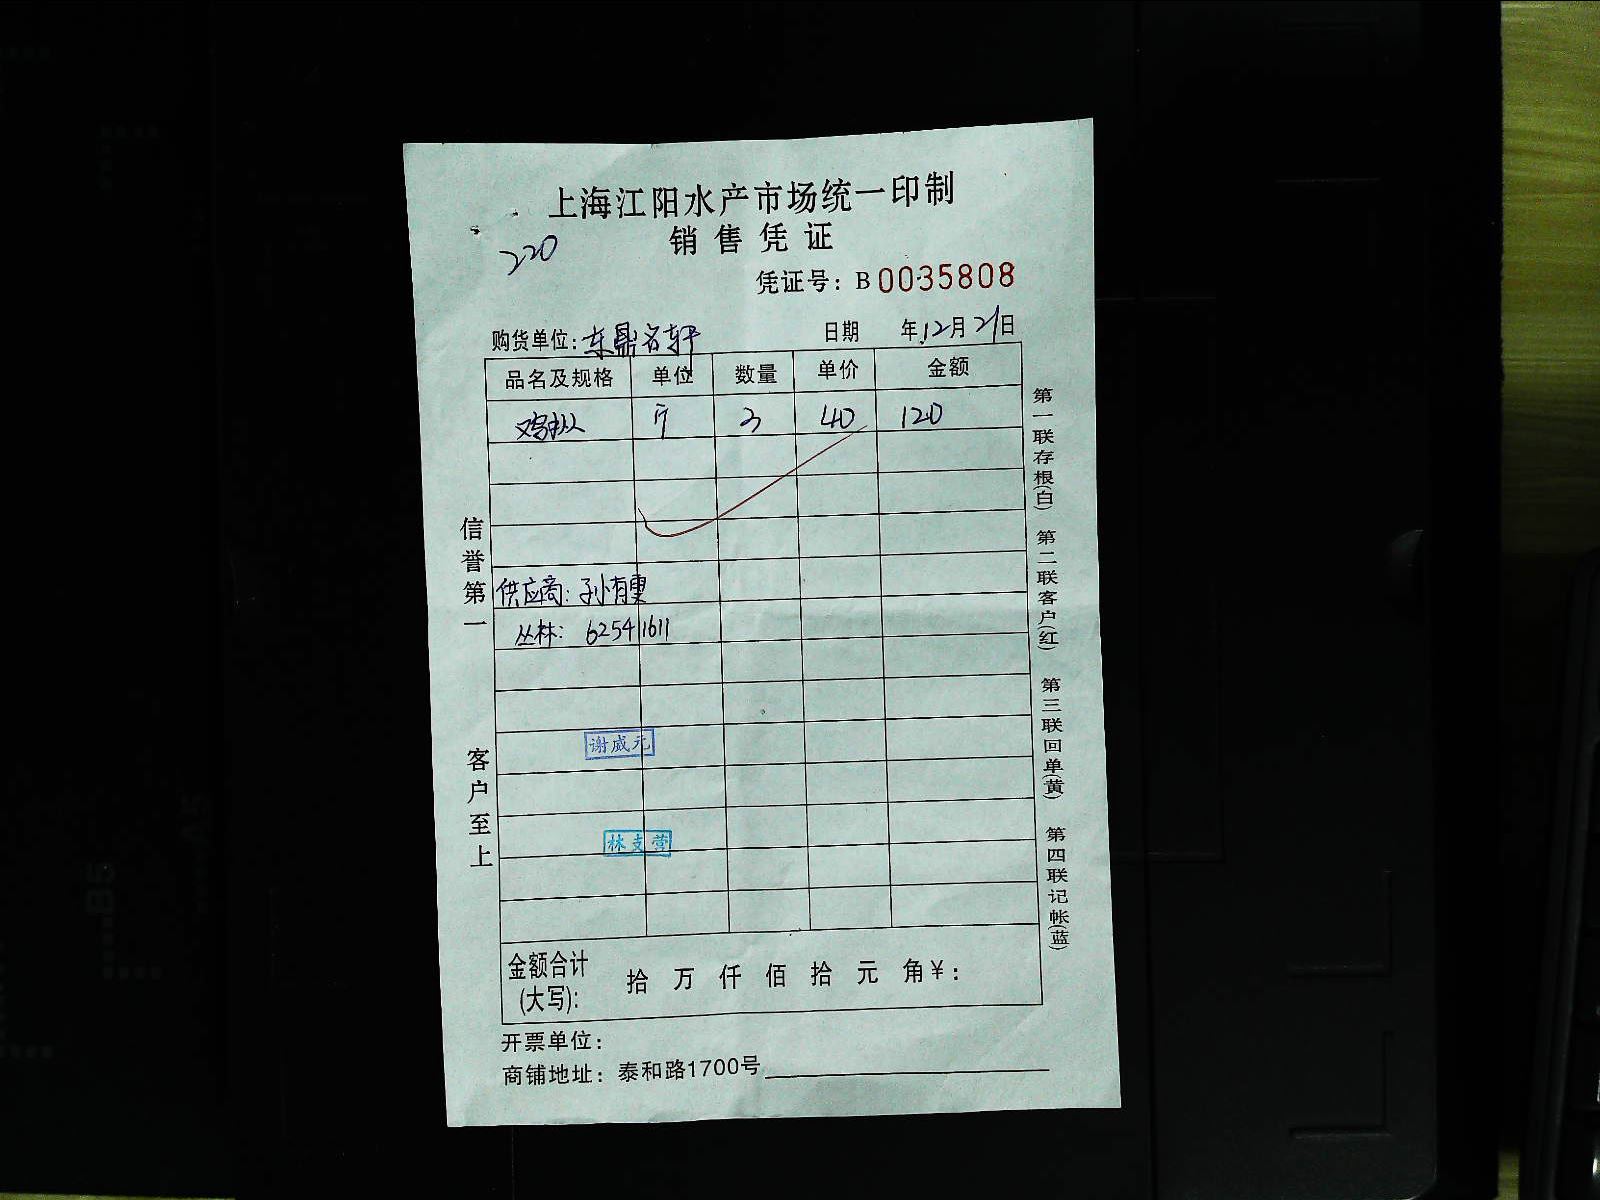 上海江阳水产市场统一印制
销售凭证
220
凭证号：B0035808
购货单位：东鼎名轩 日期 年12月21日
品名及规格 单位 数量 单价 金额
鸡枞 斤 3 40 120
供应商：孙有雯
丛林：62541611
谢威元
林支营
金额合计(大写)： 拾 万 仟 佰 拾 元 角 ¥：
开票单位：
商铺地址：泰和路1700号
信誉第一 客户至上
第一联存根(白) 第二联客户(红) 第三联回单(黄) 第四联记帐(蓝)